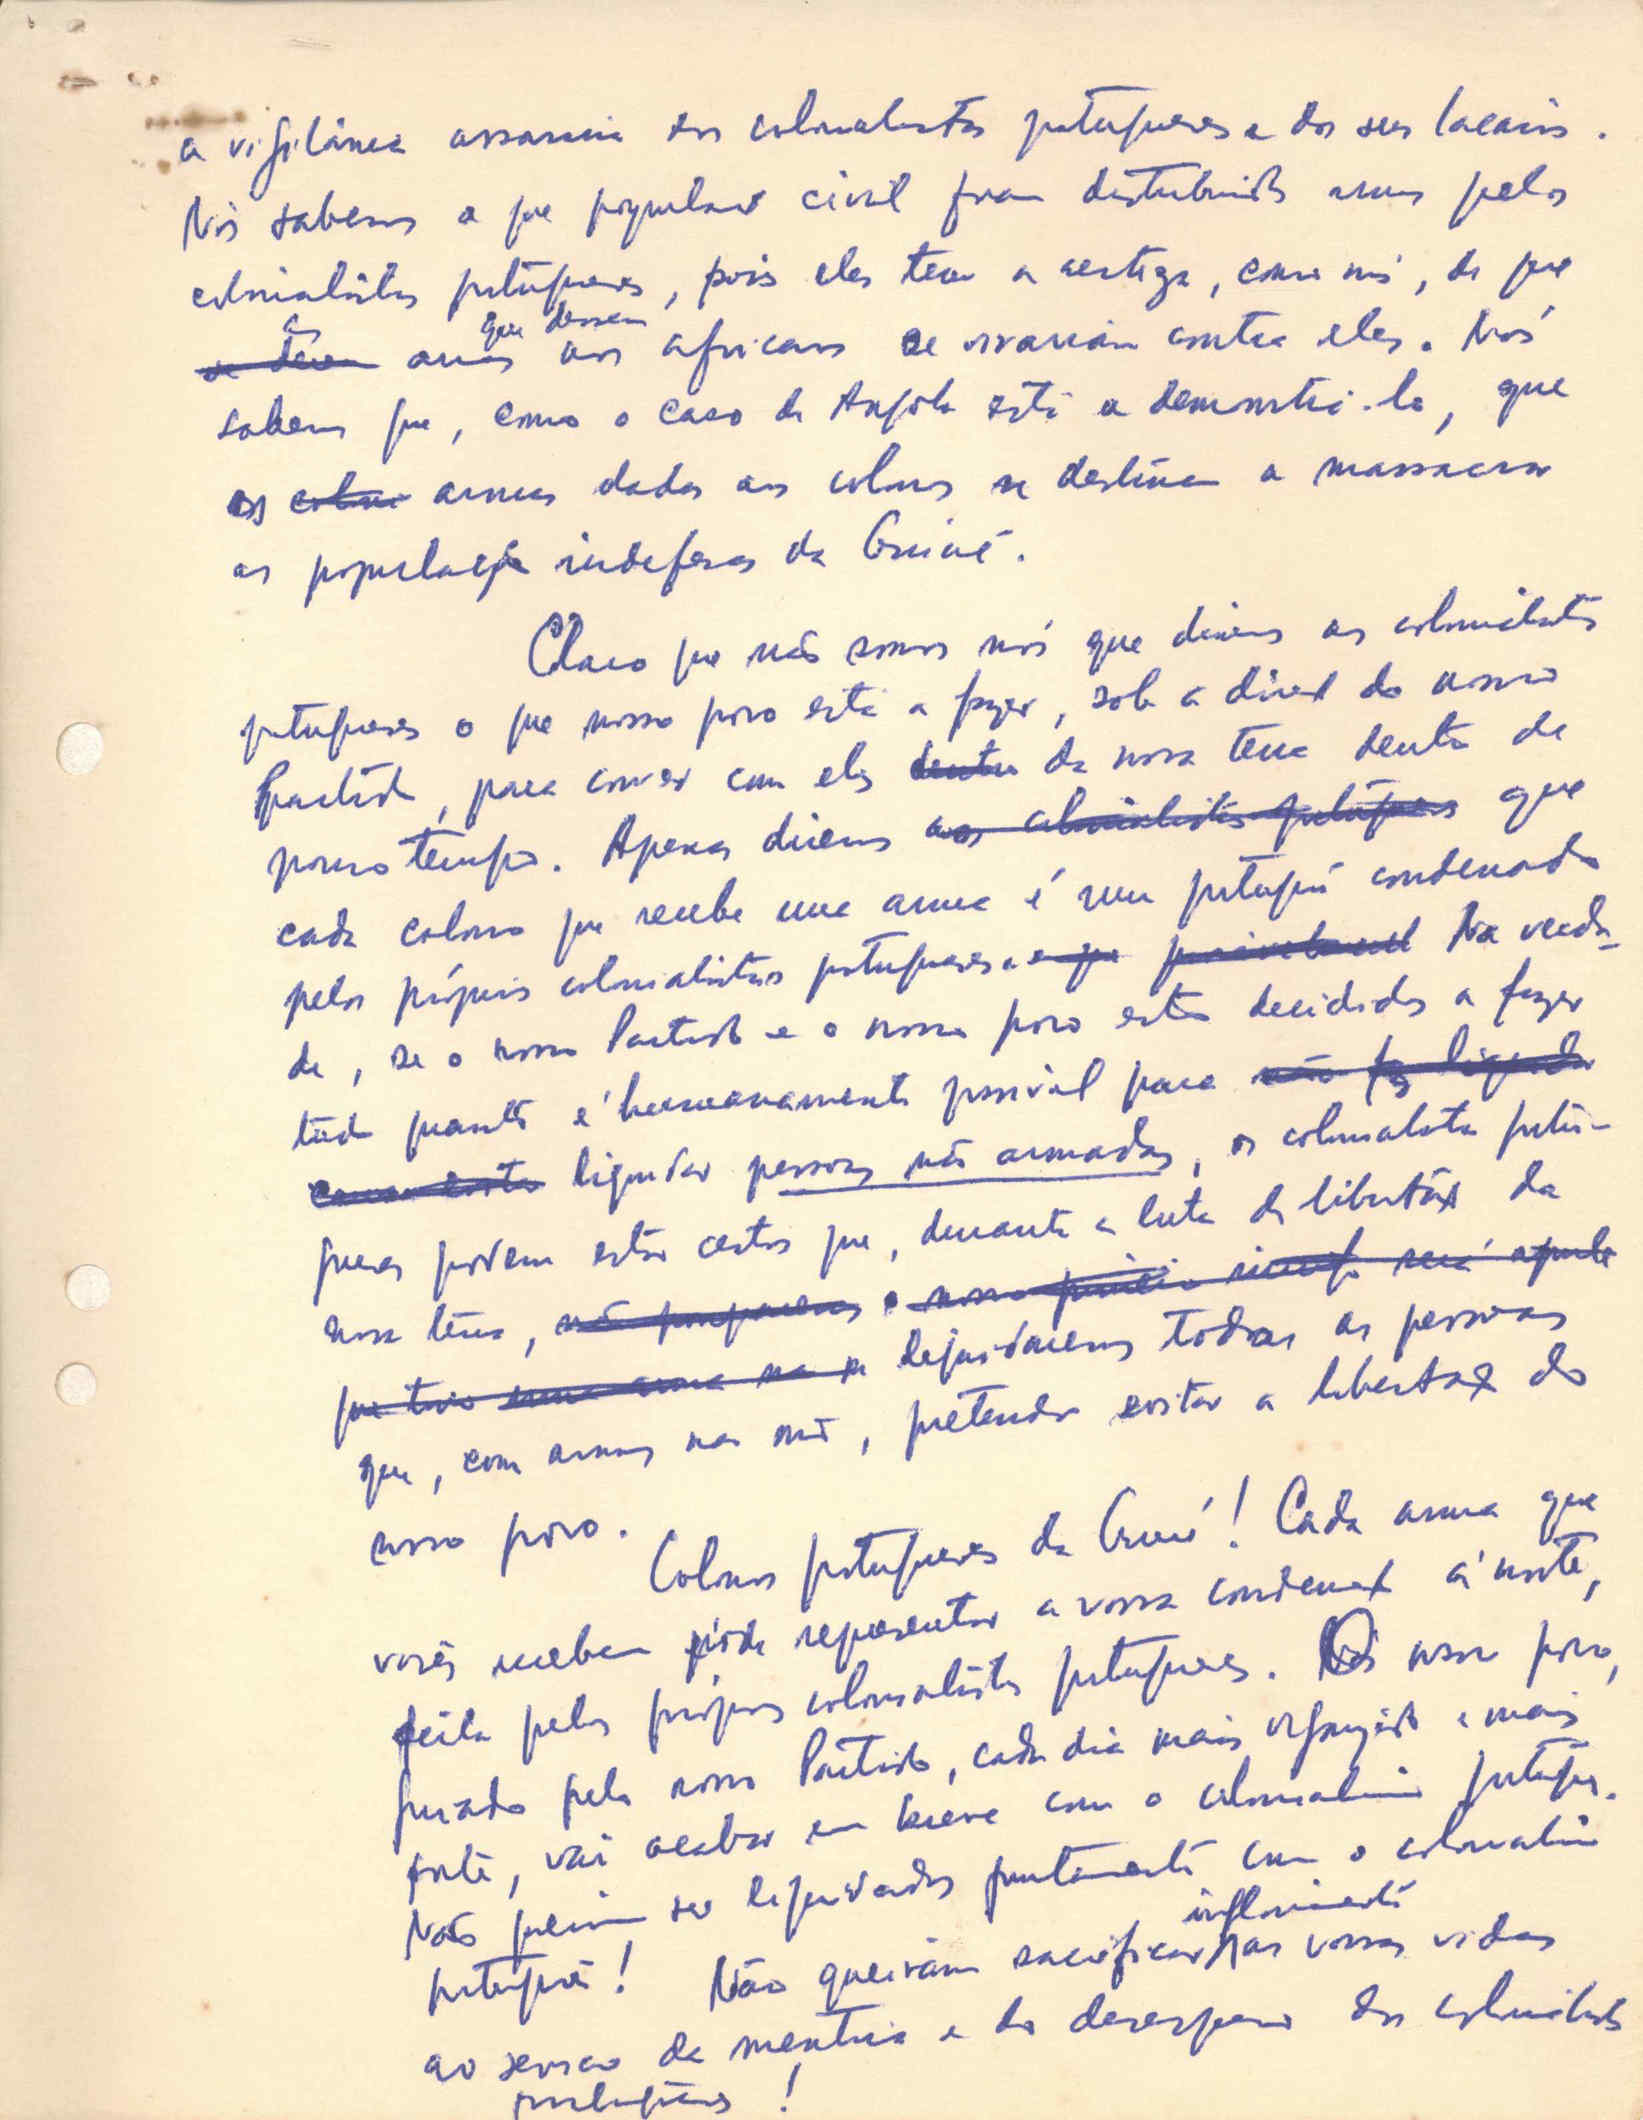 a vigilância assassina dos colonialistas portugueses e dos seus lacaios.
Nós sabemos a que população civil foram distribuidas armas pelos
colonialistas portugueses, pois eles têm a certeza, como nós, de que
as armas que dessem aos africanos se virariam contra eles. Nós
sabemos que, como o caso de Angola está a demonstrá-lo, que
as armas dadas aos colonos se destinam a massacrar
as populações indefesas da Guiné.
Claro que não somos nós que diremos aos colonialistas
portugueses o que nosso povo está a fazer, sob a direcção do nosso
Partido, para correr com eles da nossa terra dentro de
pouco tempo. Apenas diremos que
cada colono que recebe uma arma é um português condenado
pelos próprios colonialistas portugueses. Na verda-
de, se o nosso Partido e o nosso povo estão decididos a fazer
tudo quanto é humanamente possível para não
liquidar pessoas não armadas, os colonialistas portu-
gueses podem estar certos que, durante a luta de libertação da
nossa terra, liquidaremos todas as pessoas
que, com armas nas mãos, pretendam evitar a libertação do
nosso povo.
Colonos portugueses da Guiné! Cada arma que
vocês recebem pode representar a vossa condenação à morte,
feita pelos próprios colonialistas portugueses. O nosso povo,
guiado pelo nosso Partido, cada dia mais organizado e mais
forte, vai acabar em breve com o colonialismo português.
Não queiram ser liquidados juntamente com o colonialismo
português! Não queiram sacrificar ingloriamente as vossas vidas
ao serviço da mentira e do desespero dos colonialistas
portugueses!